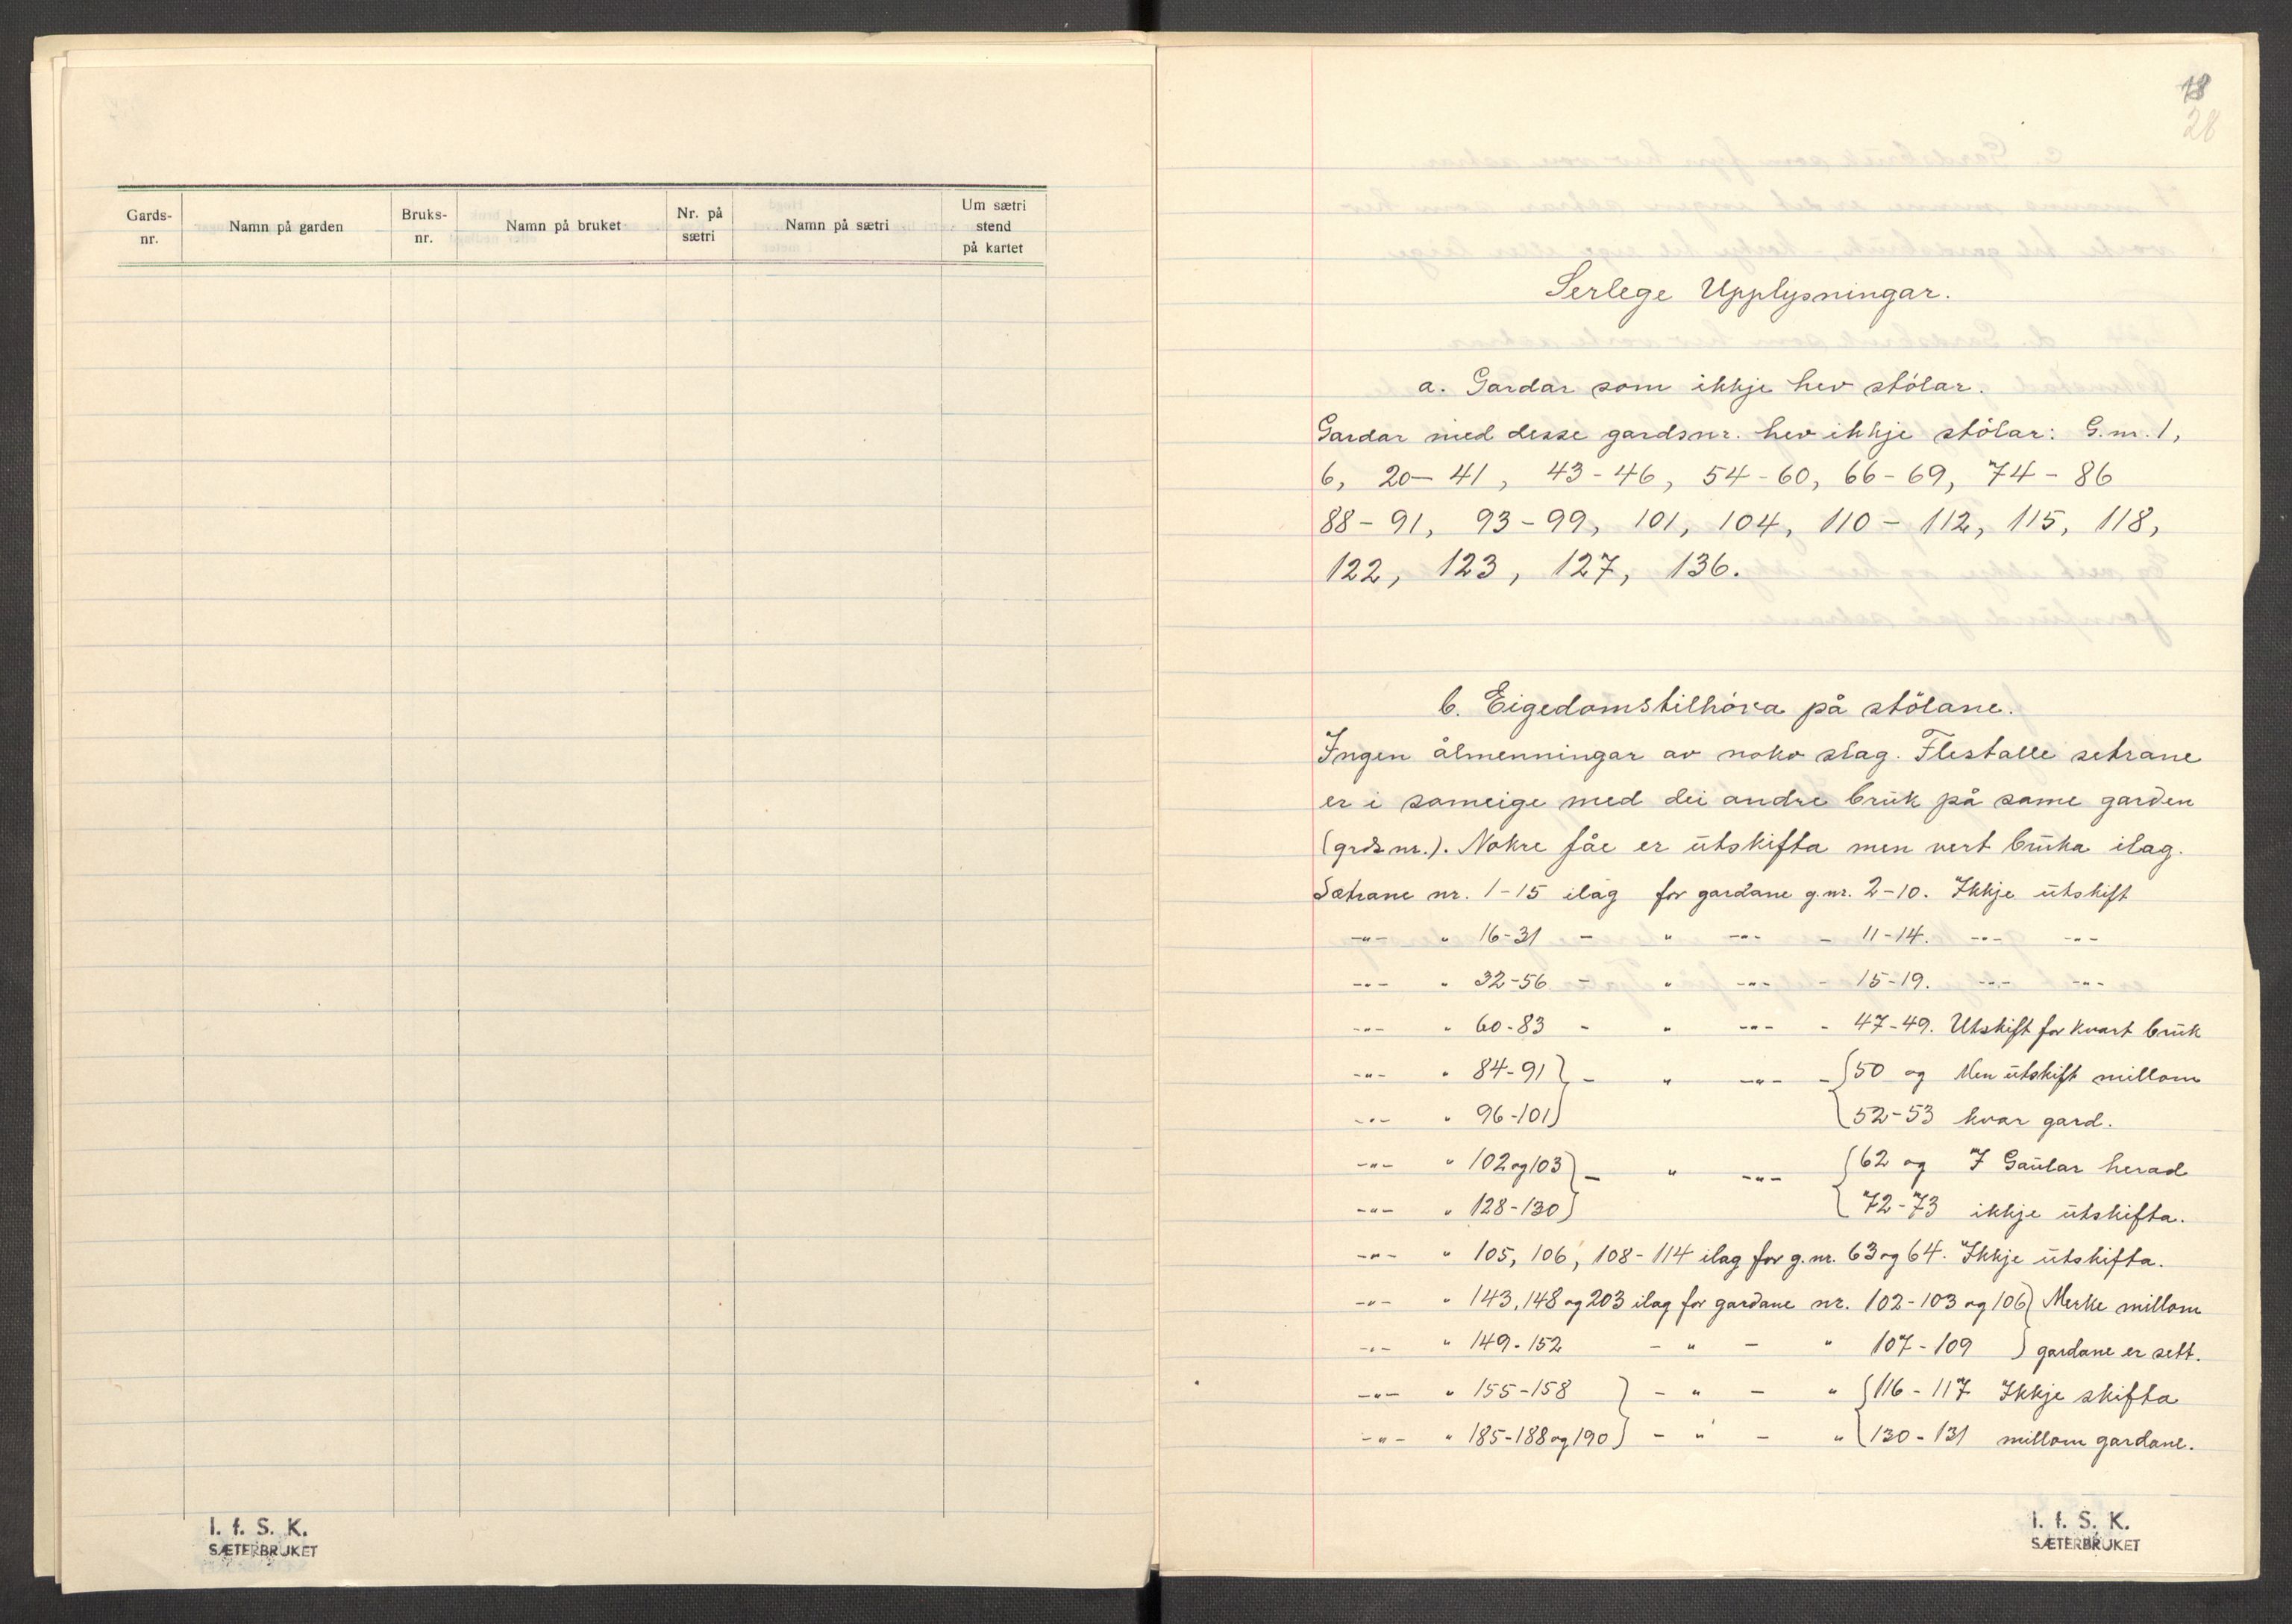 Gards-
nr.
Namn på garden
Bruks-
nr.
Namn på bruket
Nr. på
sætri
Namn på sætri
Um sætri
stend
på kartet
I. f. S. K.
SÆTERBRUKET
18
28
Serlege Upplysningar.
a. Gardar som ikkje hev stölar.
Gardar med desse gardsnr. hev ikkje stölar: G.nr. 1,
6, 20-41, 43-46, 54-60, 66-69, 74-86
88-91, 93-99, 101, 104, 110-112, 115, 118,
122, 123, 127, 136.
b. Eigedomstilhöva på stölane.
Ingen ålmenningar av noko slag. Flestalle setrane
er i sameige med dei andre bruk på same garden
(grds nr.). Nokre fåe er utskifta men vert bruka ilag.
Sætrane nr. 1-15 ilag for gardane g.nr. 2-10. Ikkje utskift
-"- " 16-31 - " -"- - 11-14. -"- -"-
-"- " 32-56 - " -"- - 15-19. -"- -"-
-"- " 60-83 - " -"- - 47-49. Utskift for kvart bruk
-"- " 84-91} - " -"- - {50 og Men utskift millom
-"- " 96-101} {52-53 kvar gard.
-"- " 102 og 103} - " -"- {62 og I Gaular herad
-"- " 128-130} {72-73 ikkje utskifta.
-"- " 105, 106, 108-114 ilag for g.nr. 63 og 64. Ikkje utskifta.
-"- " 143, 148 og 203 ilag for gardane nr. 102-103 og 106} Merke millom
-"- " 149-152 - " - " 107-109 } gardane er sett.
-"- " 155-158 } - " - " {116-117 Ikkje skifta
-"- " 185-188 og 190} - " - " {130-131 millom gardane.
I. f. S. K.
SÆTERBRUKET